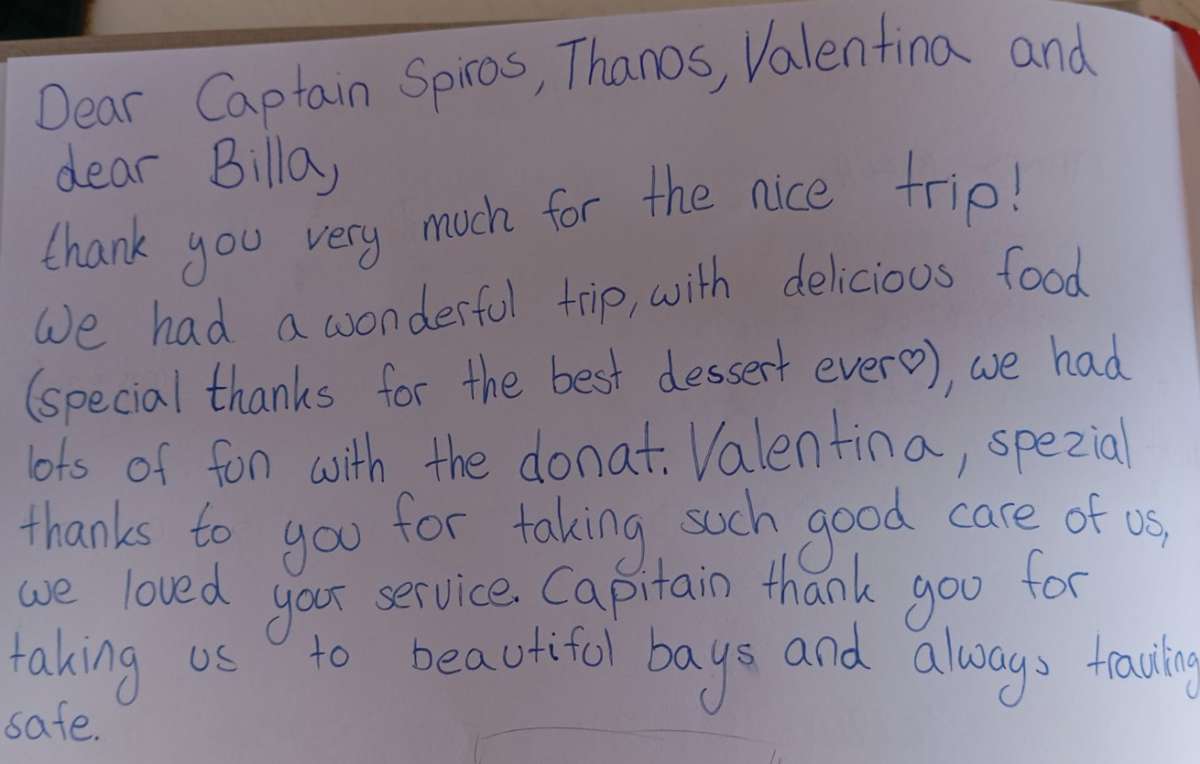 Dear Captain Spiros, Thanos, Valentina and
dear Billa,
thank you very much for the nice trip!
We had a wonderful trip, with delicious food
(special thanks for the best dessert ever♡), we had
lots of fun with the donat. Valentina, spezial
thanks to you for taking such good care of us,
we loved your service. Capitain thank you for
taking us to beautiful bays and always traviling
safe.